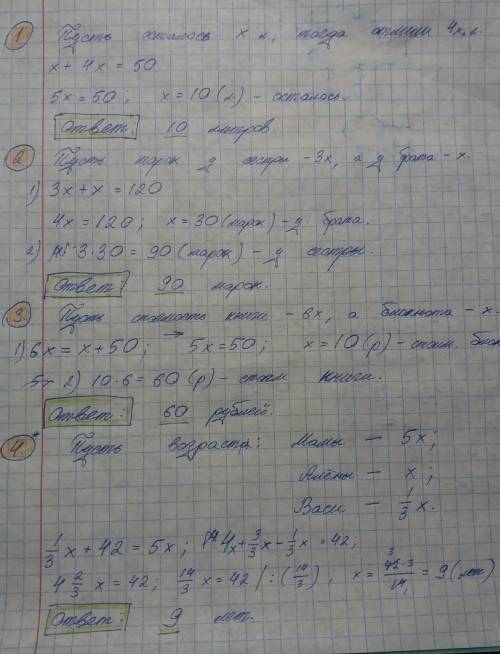 1 Пусть осталось x л., тогда отлили 4x л.
x + 4x = 50
5x = 50; x = 10 (л) - осталось.
Ответ: 10 литров.
2 Пусть марок у сестры - 3x, а у брата - x.
1) 3x + x = 120
4x = 120; x = 30 (марок) - у брата.
2) 3·30 = 90 (марок) - у сестры.
Ответ: 90 марок.
3. Пусть стоимость книги - 6x, а блокнота - x.
1) 6x = x + 50; → 5x = 50; x = 10 (р) - стоим. блок
2) 10·6 = 60 (р) - стоим книги.
Ответ: 60 рублей.
4.* Пусть возраста: Мамы - 5x;
Алёны - x;
Васи - 1/3 x.
1/3 x + 42 = 5x; 4x + 3/3 x - 1/3 x = 42;
4 2/3 x = 42; 14/3 x = 42 | : (14/3); x = 42·3/14 = 9 (лет)
Ответ: 9 лет.